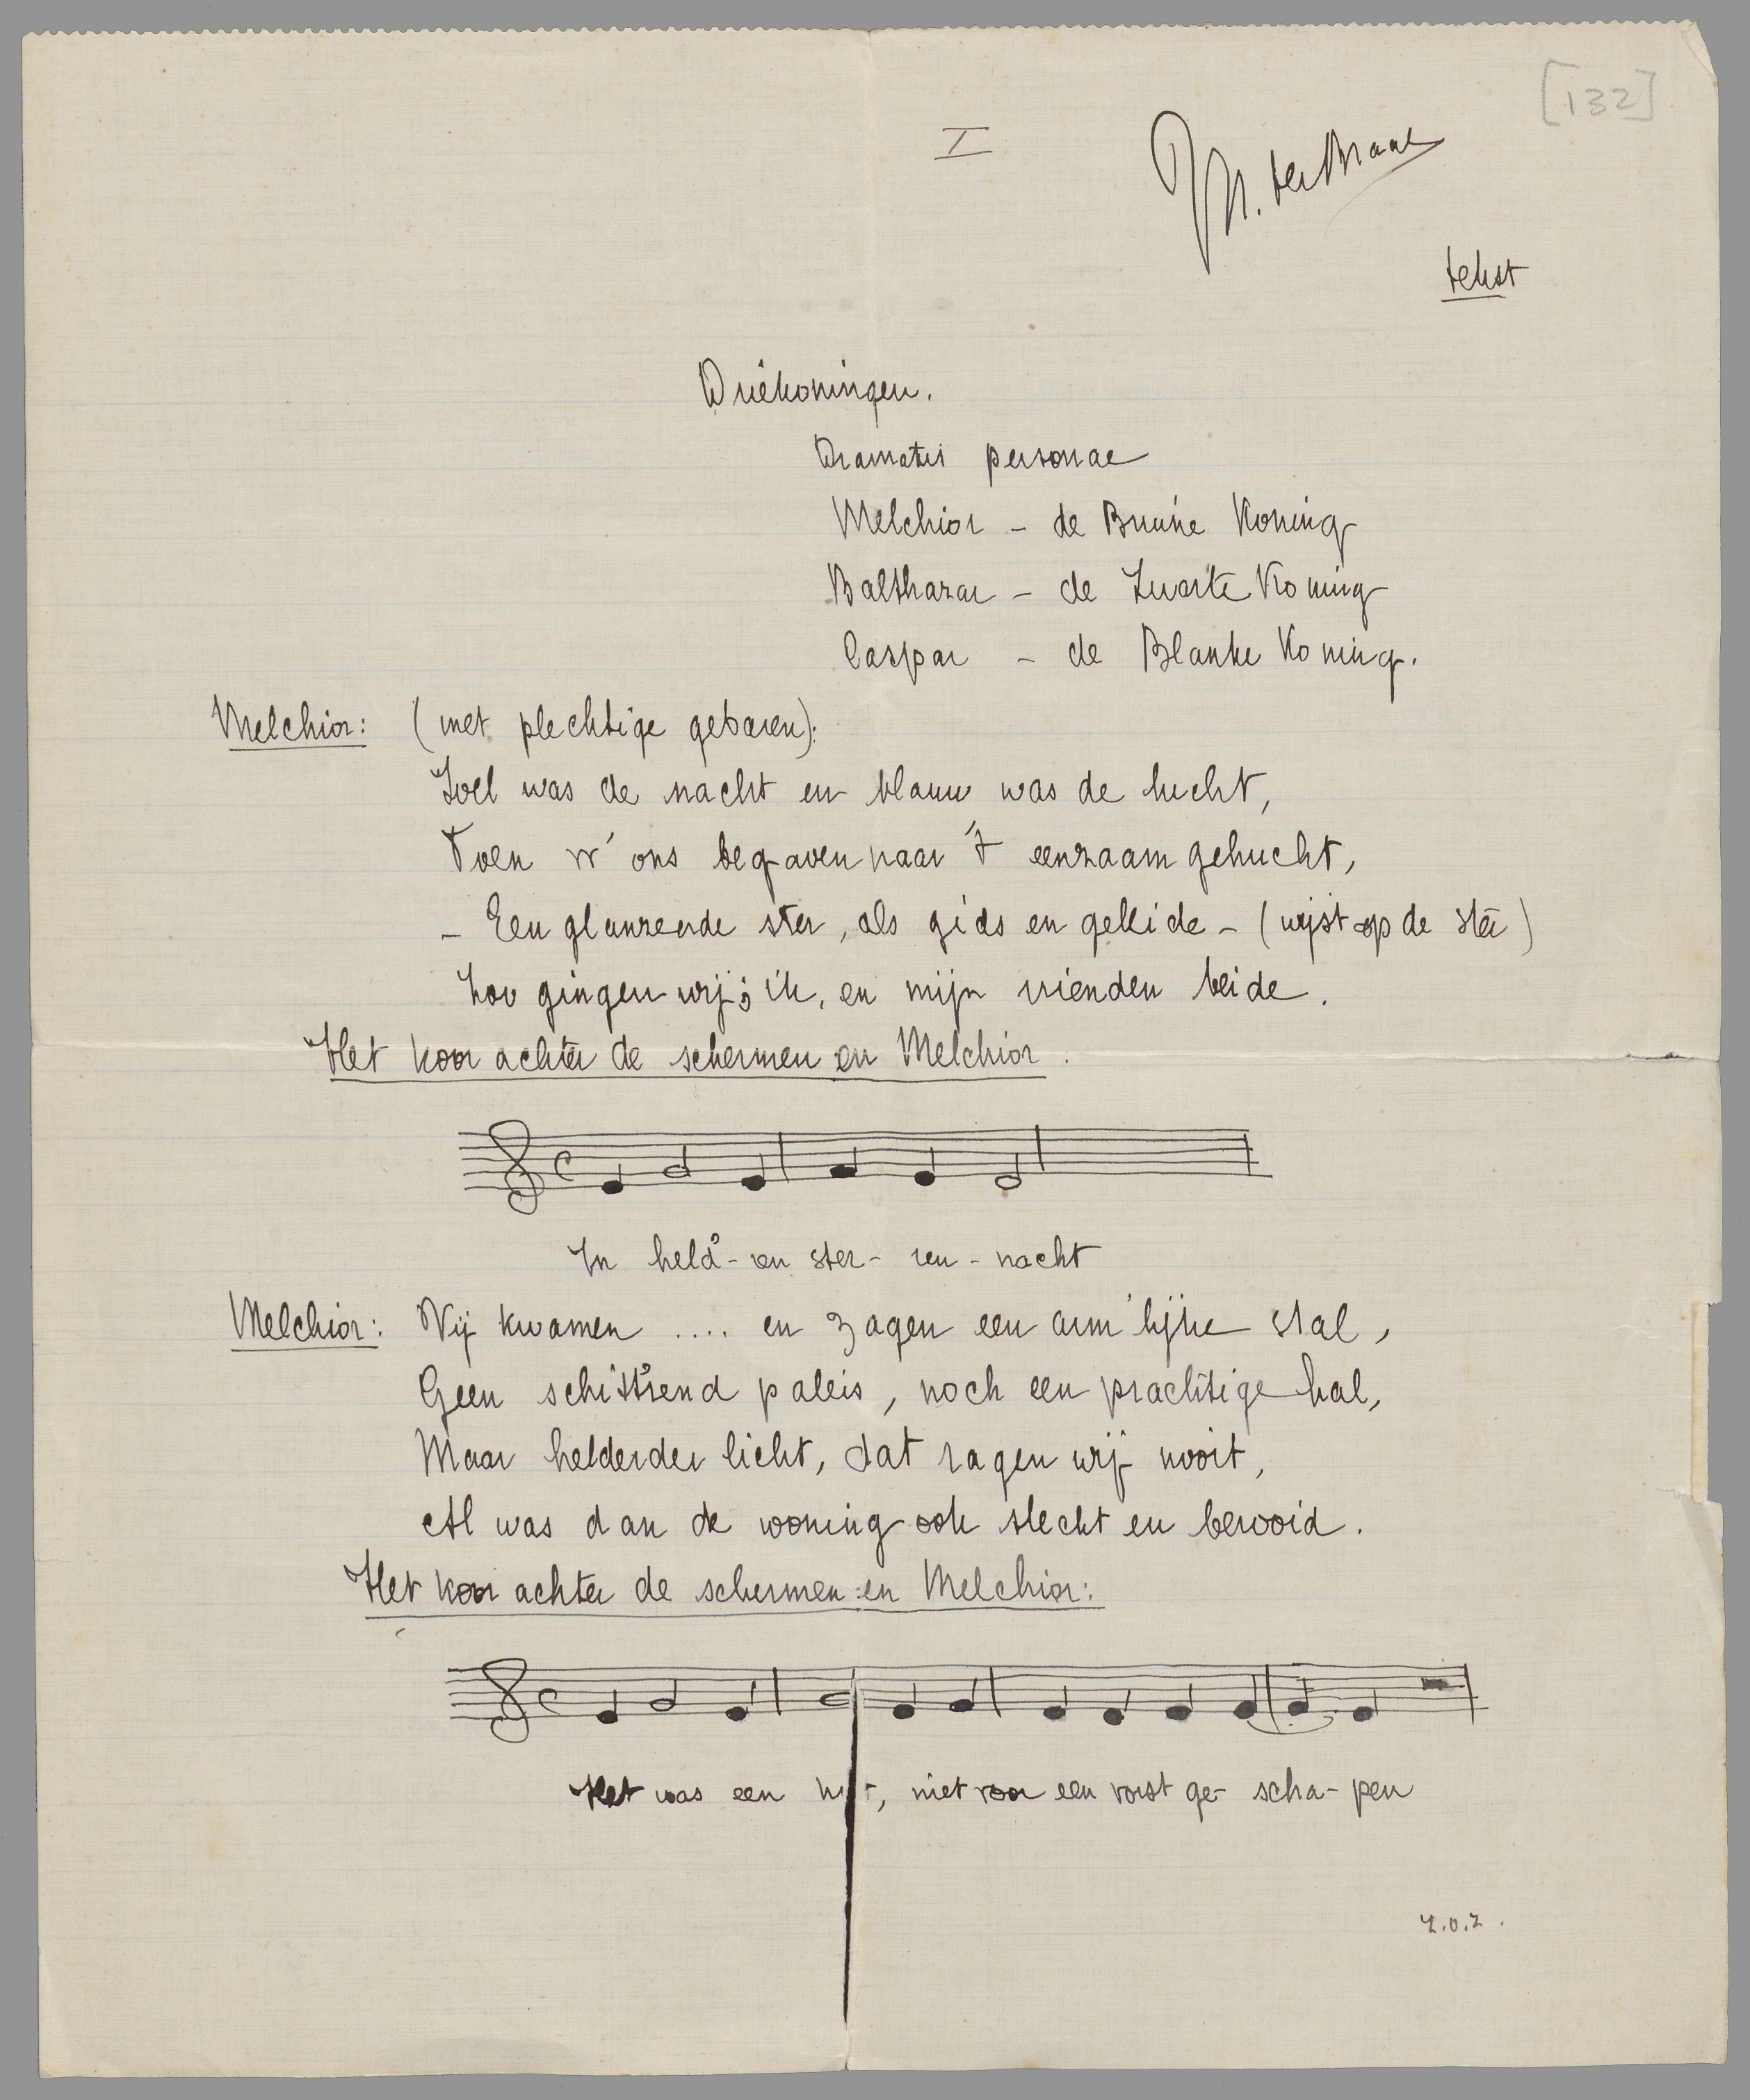 [132]
I
M. ter Braak
tekst
Driekoningen.
Dramatis personae
Melchior - de Bruine Koning
Balthazar - de Zwarte Koning
Caspar - de Blanke Koning.
Melchior: (met plechtige gebaren):
Zoel was de nacht en blauw was de lucht,
Toen w' ons begaven naar 't eenzaam gehucht,
- Een glanzende ster, als gids en geleide - (wijst op de ster)
Zoo gingen wij; ik, en mijn vrienden beide.
Het koor achter de schermen en Melchior.
In held'-ren ster-ren-nacht
Melchior: Wij kwamen .... en zagen een arm'lijke stal,
Geen schitt'rend paleis, noch een prachtige hal,
Maar helderder licht, dat zagen wij nooit,
Al was dan de woning ook slecht en berooid.
Het koor achter de schermen en Melchior:
Het was een , niet voor een vorst ge-scha-pen
Z.O.Z.